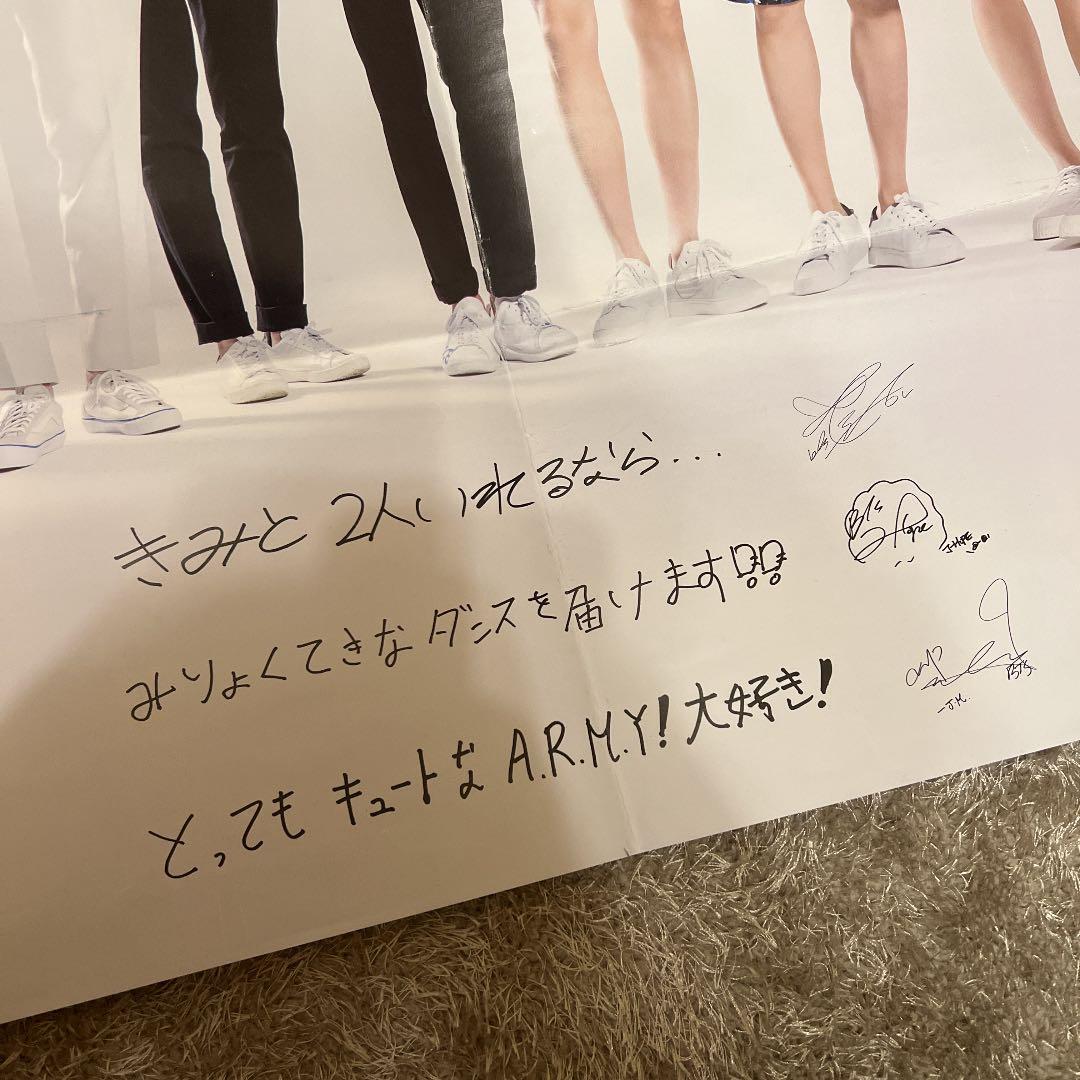 きみと 2人いれるなら...
みりょくてきなダンスを届けます!!
とっても キュートな A.R.M.Y! 大好き!
BTS
Hope
J-HOPE
BTS
-J.M.